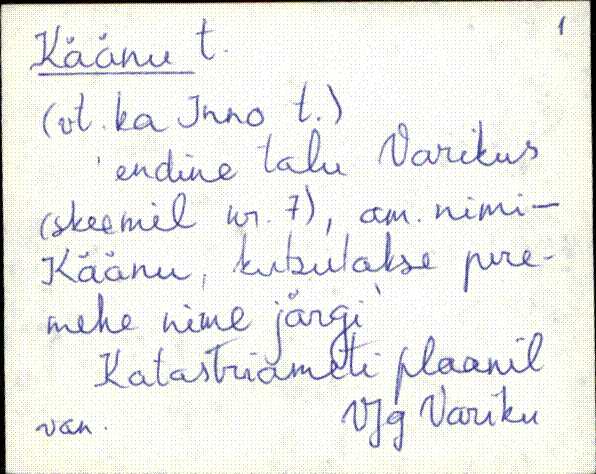 1
Käänu t.
(vt. ka Inno t.)
'endine talu Varikus
(skeemil nr. 7), am. nimi-
Käänu, kutsutakse pere-
mehe nime järgi'
Katastriameti plaanil
van. VJg Variku